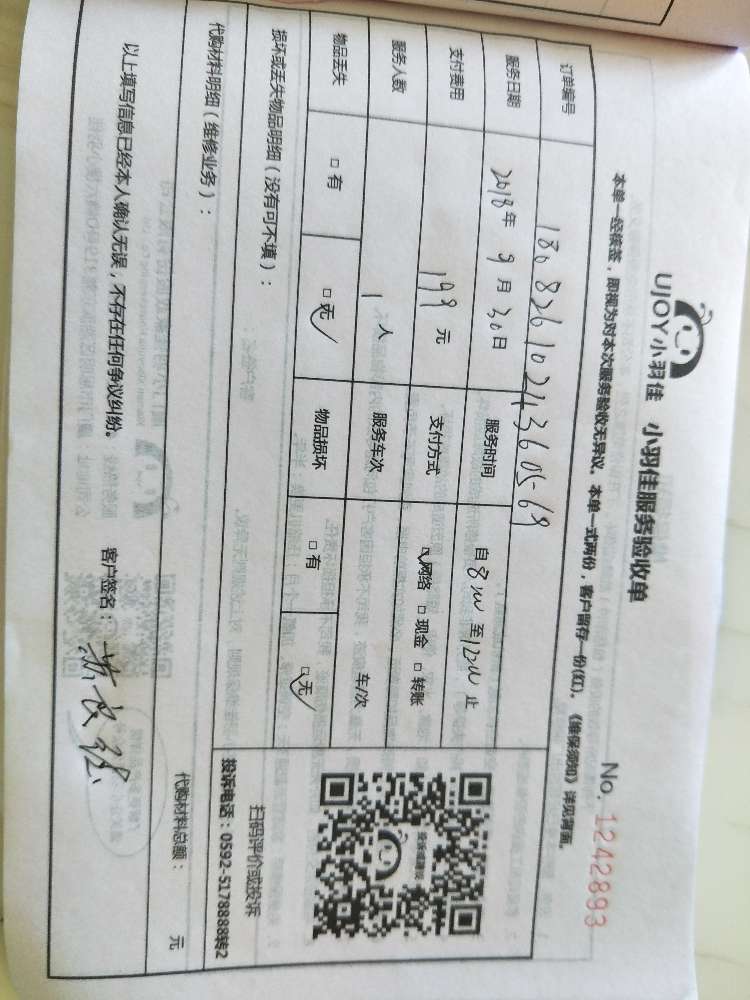 UJOY小羽佳 小羽佳服务验收单
No. 1242893
本单一经接签，即视为对本次服务验收无异议。本单一式两份，客户留存一份(红)。《维保须知》详见背面。
订单编号 1808261024360569
服务日期 2018年9月30日 服务时间 自8:00至12:00止
支付费用 199元 支付方式 ☑网络 □现金 □转账
服务人数 1人 服务车次 车/次
物品丢失 □有 ☑无 物品损坏 □有 ☑无
投诉或建议
扫码评价或投诉
投诉电话：0592-5178888转2
损坏或丢失物品明细（没有可不填）：
代购材料明细（维修业务）：
代购材料总额： 元
以上填写信息已经本人确认无误，不存在任何争议纠纷。 客户签名：